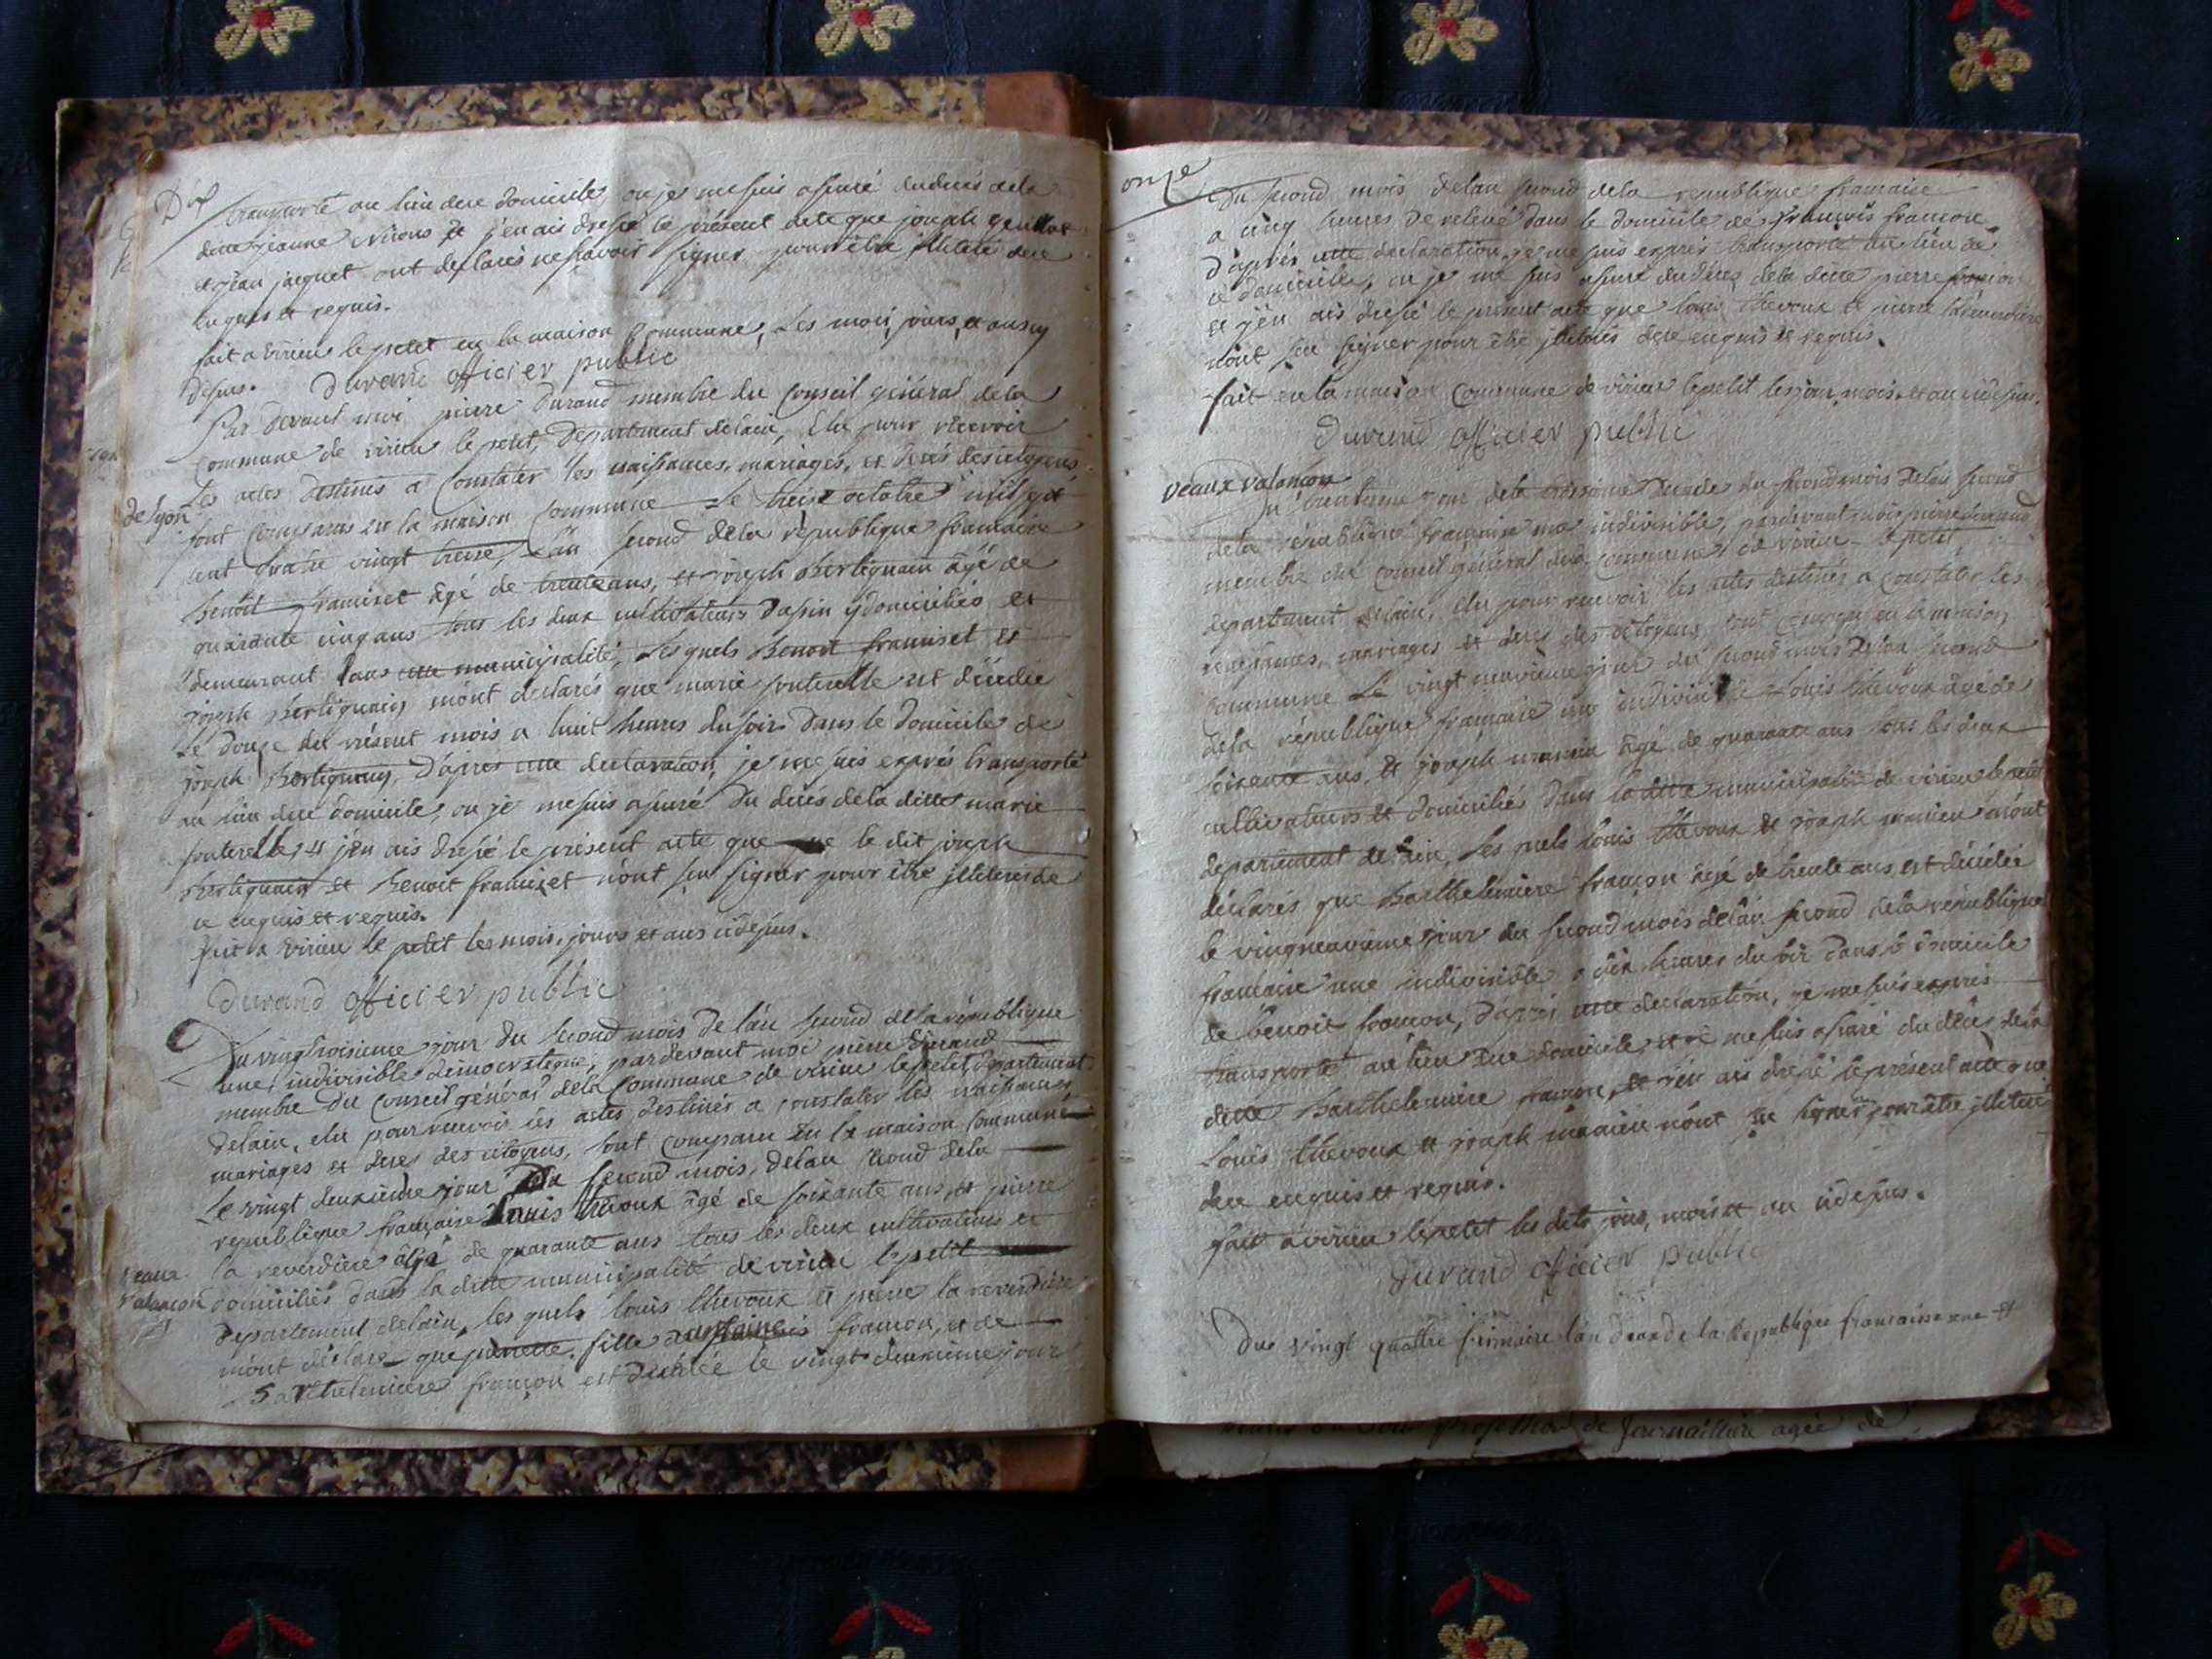 Dix
transporté au lieu de ce domicile, ou je me suis assuré du décès de la
ditte jeanne et j'en ais dressé le présent acte que joseph
et jean jacquet ont declarés ne scavoir signer pour être illiteré de ce
enquis et requis.
fait a virieu le petit en la maison commune, les mois, jours, et an susy
désus. Durand officier public
Par devant moi pierre durand membre du Conseil général de la
commune de virieu le petit, departement delain, élu pour recevoir
Les actes destinés a Constater les naissances, mariages, et decés des citoyens
de lyon
sont comparus en la maison commune le treize octobre mil sept
cent quatre vingt treize, L'an second de la république francaise
benoit framiset âgé de trente ans, et joseph bertignain âgé de
quarante cinq ans tous les deux cultivateurs y domiciliés et
demeurant dans cette municipalité, Lesquels Benoit framiset et
joseph bertignain m'ont declarés que marie est décédée
Le douze du présent mois a huit heures du soir dans le domicile de
joseph bertignain, d'apres cette declaration, je me suis exprés transporté
au lieu de ce domicile, ou je me suis assuré du decés de la ditte marie
et j'en ais dressé le présent acte que le dit joseph
bertignain et benoit framiset n'ont scu signer pour être illiterés de
ce enquis et requis.
fait a virieu le petit les mois, jours et ans cidésus.
Durand officier public
Du vingtroisieme jour du second mois de l'an second de la république
une, indivisible démocratique, pardevant moi pierre durand
membre du Conseil général dela Commune de virieu le petit departement
delain, élu pour recevoir les actes destinés a constater les naissances
mariages et deces des citoyens, sont comparu en la maison commune
Le vingt deuxieme jour du second mois, delan second dela
republique française Louis thevoux âgé de soixante ans, et pierre
la reverdiere âgé de quarante ans tous les deux cultivateurs et
veaux
valançon
domiciliés dans la ditte municipalité de virieu le petit
departement delain, les quels louis thevoux et pierre la reverdiere
mont déclaré que pierrette fille d'antoine françon, et de
Barthelemiere françon est décédée le vingt deuxieme jour
onze
Du second mois delan second dela republique francaise
a cinq heures de relevé dans le domicile de françois françon
d'aprés cette declaration, je me suis exprés transporté au lieu de
ce domicile, ou je me suis assuré du décés dela ditte pierre françon
et j'en ais dressé le present acte que louis thevoux et pierre la reverdiere
n'ont scu signer pour être illiterés dece enquis et requis.
fait en la maison commune de virieu le petit les jour, mois, et an cidesus.
Durand officier public
veaux valançon
Du trentieme jour dela troisieme decade du second mois delan second
dela république française une indivisible, pardevant moi pierre durand
membre du Conseil général dela commune de virieu le petit
departement delain, élu pour recevoir les actes destinés a constater les
naissances, mariages et deces des citoyens, sont comparu en la maison
commune Le vingt neuvieme jour du second mois delan second
dela république francaise une indivisible Louis thevoux âgé de
soixante ans, et joseph âgé de quarante ans tous les deux
cultivateurs et domiciliés dans la ditte municipalité de virieu le petit
departement de lain, Les quels louis thevoux et joseph m'ont
déclarés que Barthelemiere françon âgé de trente ans est décédée
le vingneuvieme jour du second mois delan second dela république
francaise une indivisible a dix heures du soir dans le domicile
de benoit françon, d'aprés cette declaration, je me suis exprés
transporté au lieu dece domicile, et je me suis assuré du décés dela
ditte Barthelemiere françon, et j'en ais dressé le présent acte que
Louis thevoux et joseph n'ont scu signer pour être illiteré
dece enquis et requis.
fait a virieu le petit les dits jour, mois et an cidésus.
Durand officier public
Du vingt quatre frimaire l'an deux de la Republique francaise une et
de Journaillière agée de